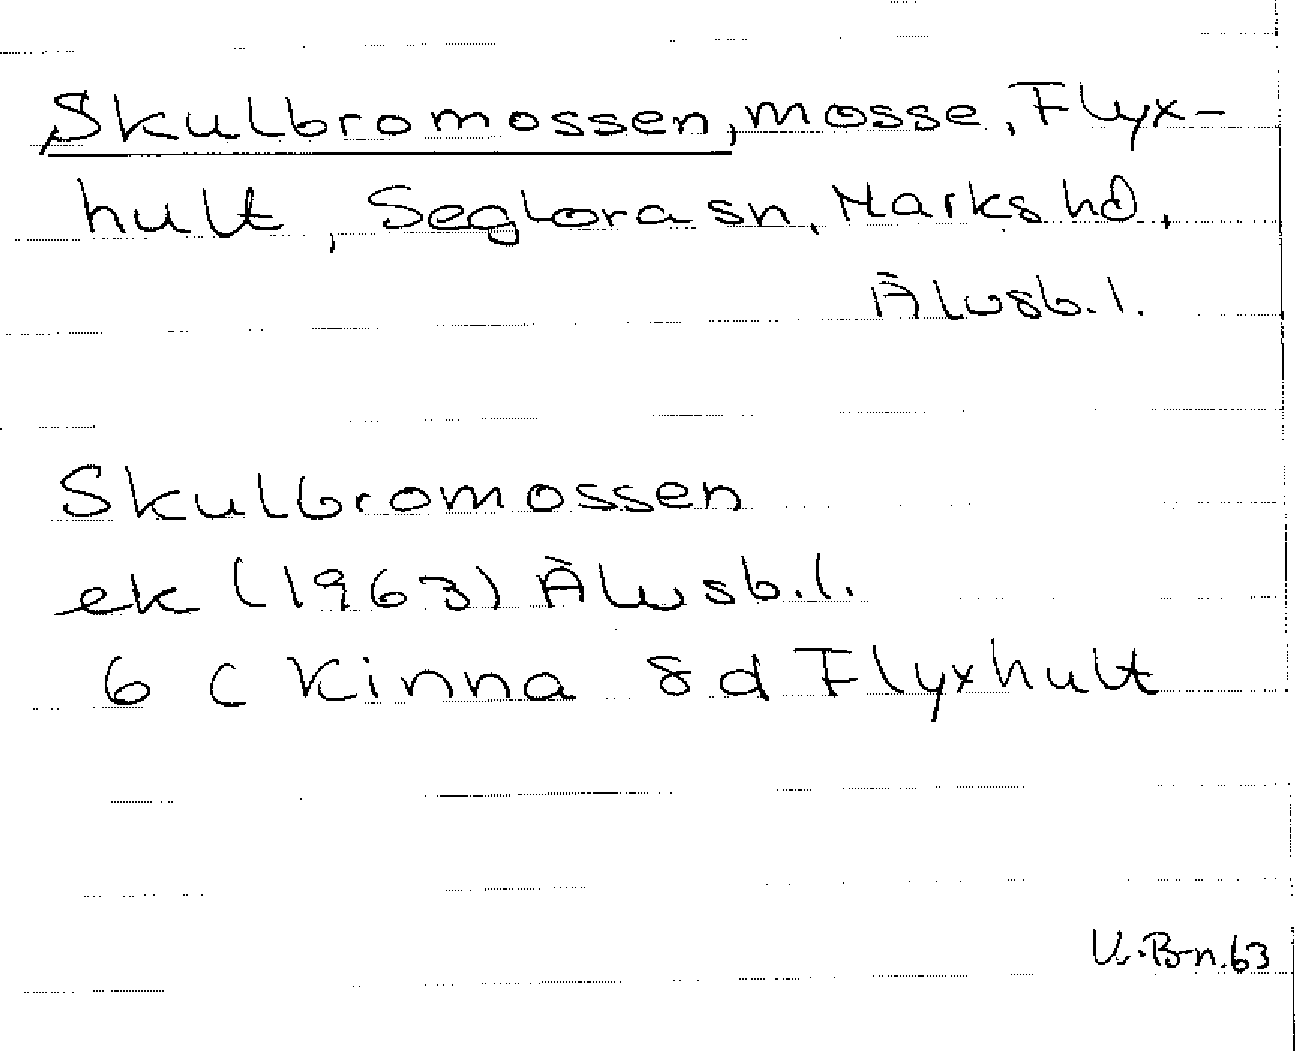 Skulbromossen, mosse, Flyx-
hult, Seglora sn, Marks hd,
Älvsb.l.
Skulbromossen
ek (1963) Älvsb.l.
6 C Kinna 8 d Flyxhult
V.B-n.63